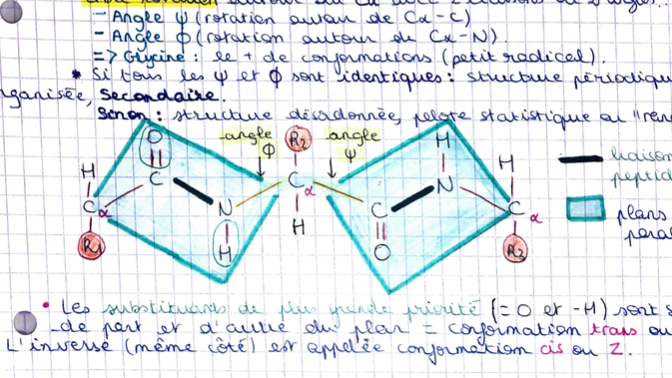 - Angle ψ (rotation autour de Cα-C)
- Angle ϕ (rotation autour de Cα-N).
=> Glycine: le + de conformations (petit radical).
• Si tous les ψ et ϕ sont identiques: structure périodique
organisée, secondaire.
Sinon: structure désordonnée, pelote statistique ou "ren
angle ϕ
angle ψ
O
C
H
Cα
R1
N
H
R2
Cα
H
C
O
H
N
H
Cα
R2
liaison
peptid
plans
paral
• Les substituants de plus grande priorité (=O et -H) sont s
de part et d'autre du plan = conformation trans ou
L'inverse (même côté) est appelée conformation cis ou Z.